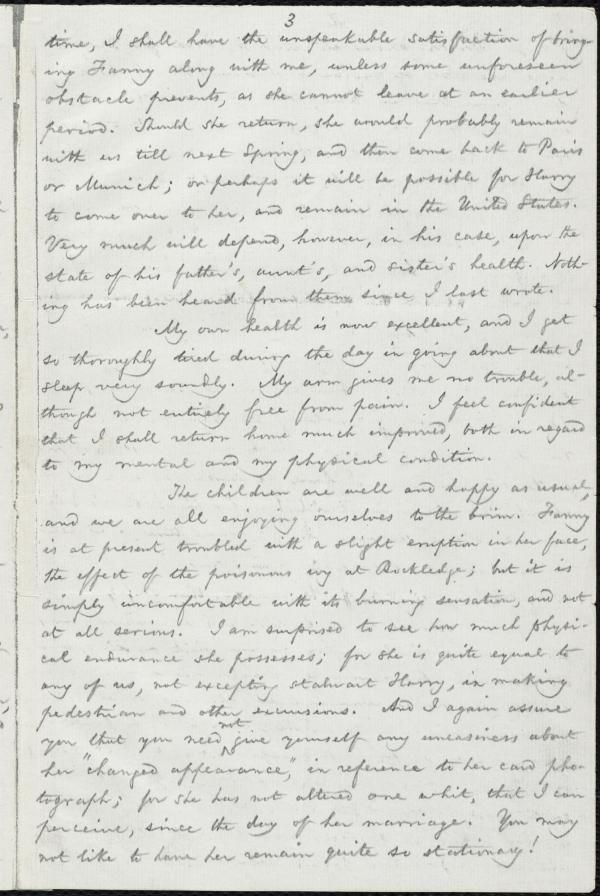 3
time, I shall have the unspeakable satisfaction of bring-
ing Fanny along with me, unless some unforeseen
obstacle prevents, as she cannot leave at an earlier
period. Should she return, she would probably remain
with us till next Spring, and then come back to Paris
or Munich; or perhaps it will be possible for Harry
to come over to her, and remain in the United States.
Very much will depend, however, in his case, upon the
state of his father's, aunt's, and sister's health. Noth-
ing has been heard from them since I last wrote.
My own health is now excellent, and I get
so thoroughly tired during the day in going about that I
sleep very soundly. My arm gives me no trouble, al-
though not entirely free from pain. I feel confident
that I shall return home much improved, both in regard
to my mental and my physical condition.
The children are well and happy as usual,
and we are all enjoying ourselves to the brim. Fanny
is at present troubled with a slight eruption in her face,
the effect of the poisonous ivy at Rockledge; but it is
simply uncomfortable with its burning sensation, and not
at all serious. I am surprised to see how much physi-
cal endurance she possesses; for she is quite equal to
any of us, not excepting stalwart Harry, in making
pedestrian and other excursions. And I again assure
you that you need not give yourself any uneasiness about
her "changed appearance," in reference to her card pho-
tograph; for she has not altered one whit, that I can
perceive, since the day of her marriage. You may
not like to have her remain quite so stationary!